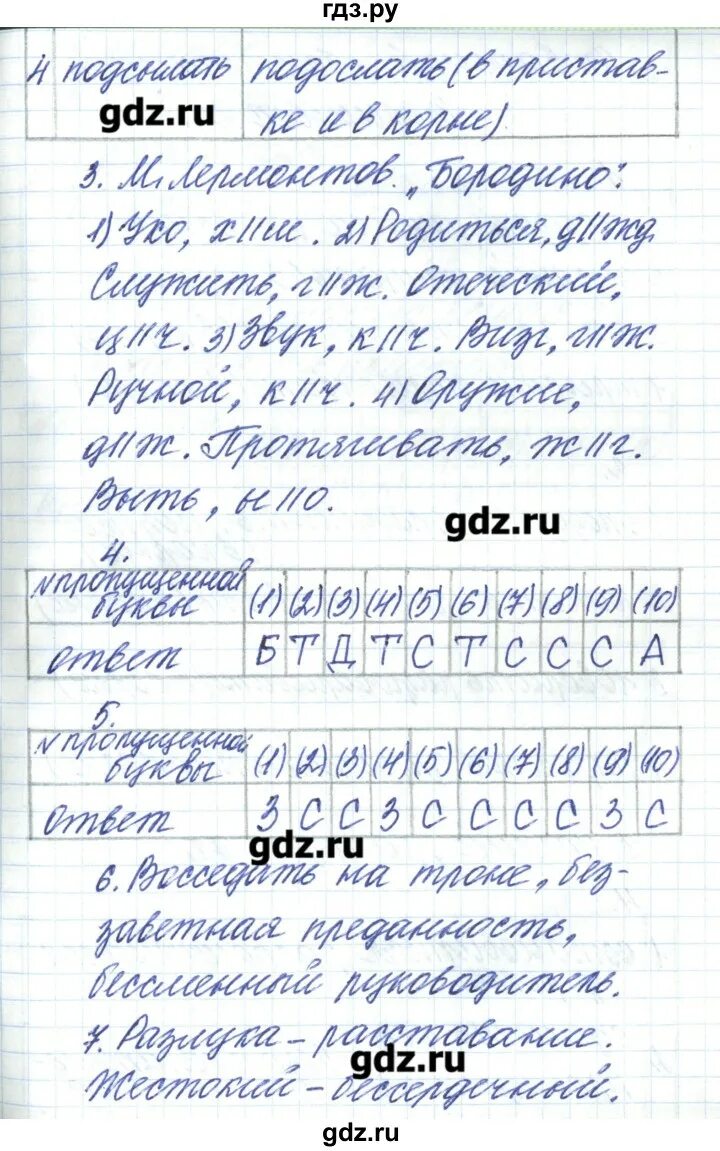 гдз.ру
4 подсылать подослать (в пристав-
ке и в корне)
gdz.ru
3. М. Лермонтов. „Бородино“.
1) Ухо, х//ш. 2) Родиться, д//жд.
Служить, г//ж. Отеческий,
ц//ч. 3) Звук, к//ч. Визг, г//ж.
Ручной, к//ч. 4) Оружие,
д//ж. Протягивать, ж//г.
Выть, ы//о.
gdz.ru
4.
N пропущенной буквы (1) (2) (3) (4) (5) (6) (7) (8) (9) (10)
ответ Б Т Д Т С Т С С С А
5.
N пропущенной буквы (1) (2) (3) (4) (5) (6) (7) (8) (9) (10)
ответ З С С З С С С С З С
gdz.ru
6. Восседать на троне, без-
заветная преданность,
бессменный руководитель.
7. Разлука – расставание.
gdz.ru
Жестокий – бессердечный.
gdz.ru